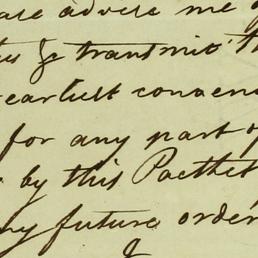 advise me
& transmit
earliest conven
for any part of
by this Packet
my future order